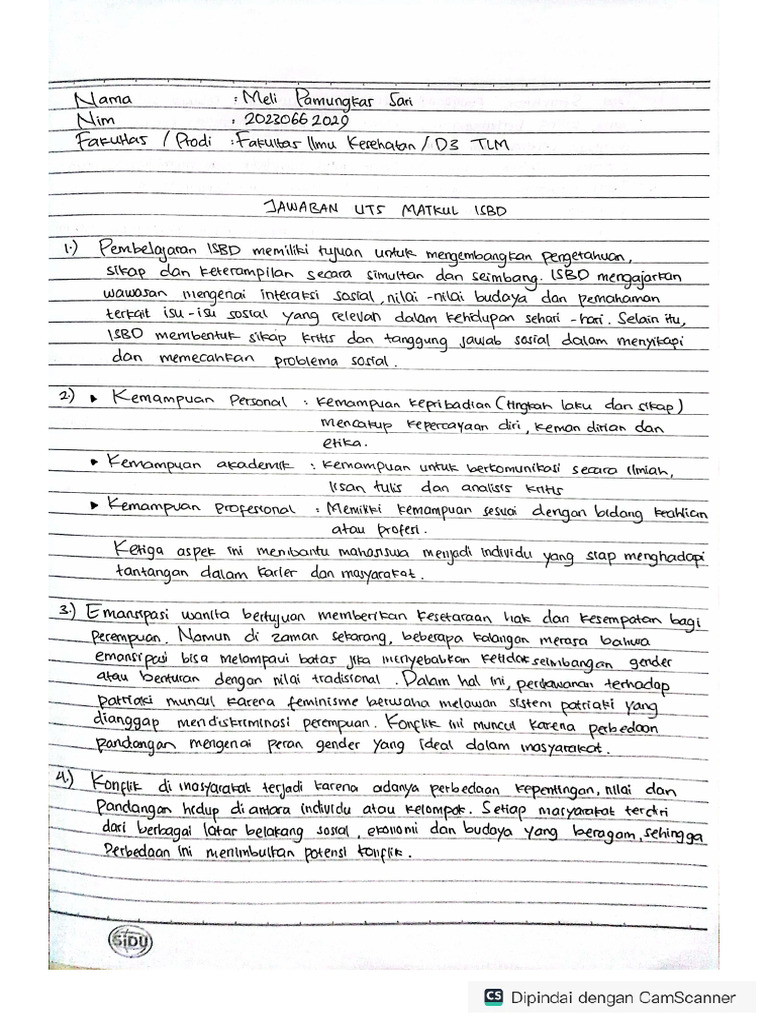 Nama : Meli Pamungkas Sari
Nim : 2023066 2029
Fakultas / Prodi : Fakultas Ilmu Kesehatan / D3 TLM
JAWABAN UTS MATKUL ISBD
1.) Pembelajaran ISBD memiliki tujuan untuk mengembangkan pengetahuan,
sikap dan keterampilan secara simultan dan seimbang. ISBD mengajarkan
wawasan mengenai interaksi sosial, nilai-nilai budaya dan pemahaman
terkait isu-isu sosial yang relevan dalam kehidupan sehari-hari. Selain itu,
ISBD membentuk sikap kritis dan tanggung jawab sosial dalam menyikapi
dan memecahkan problema sosial.
2.) ▸ Kemampuan Personal : Kemampuan kepribadian (tingkah laku dan sikap)
mencakup kepercayaan diri, kemandirian dan
etika.
▸ Kemampuan akademik : Kemampuan untuk berkomunikasi secara ilmiah,
lisan tulis dan analisis kritis
▸ Kemampuan Profesional : Memiliki kemampuan sesuai dengan bidang keahlian
atau profesi.
Ketiga aspek ini membantu mahasiswa menjadi individu yang siap menghadapi
tantangan dalam karier dan masyarakat.
3.) Emansipasi wanita bertujuan memberikan kesetaraan hak dan kesempatan bagi
perempuan. Namun di zaman sekarang, beberapa kalangan merasa bahwa
emansipasi bisa melampaui batas jika menyebabkan ketidakseimbangan gender
atau benturan dengan nilai tradisional. Dalam hal ini, perlawanan terhadap
patriaki muncul karena feminisme berusaha melawan sistem patriaki yang
dianggap mendiskriminasi perempuan. Konflik ini muncul karena perbedaan
pandangan mengenai peran gender yang ideal dalam masyarakat.
4.) Konflik di masyarakat terjadi karena adanya perbedaan kepentingan, nilai dan
pandangan hidup di antara individu atau kelompok. Setiap masyarakat terdiri
dari berbagai latar belakang sosial, ekonomi dan budaya yang beragam, sehingga
Perbedaan ini menimbulkan potensi konflik.
SiDU
CS Dipindai dengan CamScanner